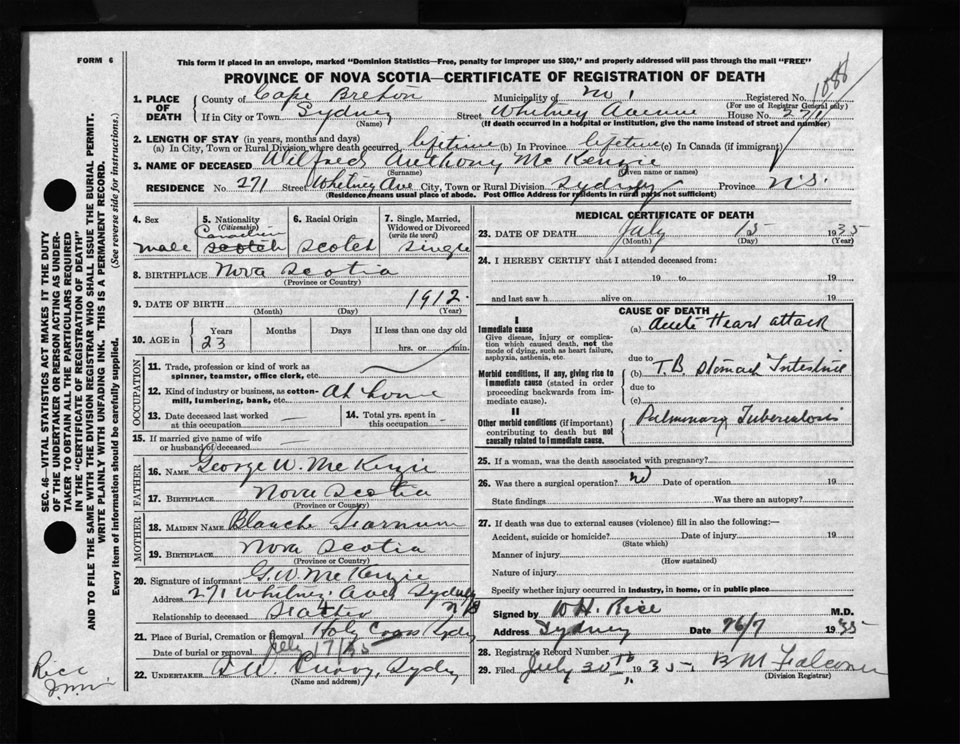 FORM 6
This form if placed in an envelope, marked "Dominion Statistics—Free, penalty for improper use $300," and properly addressed will pass through the mail "FREE"
PROVINCE OF NOVA SCOTIA—CERTIFICATE OF REGISTRATION OF DEATH
1088
1. PLACE OF DEATH
County of Cape Breton Municipality of No 1 Registered No.
(For use of Registrar General only)
If in City or Town Sydney Street Whitney Avenue House No. 271
(Name) (If death occurred in a hospital or institution, give the name instead of street and number)
2. LENGTH OF STAY (in years, months and days)
(a) In City, Town or Rural Division where death occurred, lifetime (b) In Province lifetime (c) In Canada (if immigrant)
3. NAME OF DECEASED Wilfred Anthony Mc Kenzie
(Surname) (Given name or names)
RESIDENCE No. 271 Street Whitney Ave City, Town or Rural Division Sydney Province N.S.
(Residence means usual place of abode. Post Office Address for residents in rural parts not sufficient)
4. Sex male
5. Nationality (Citizenship) Canadian Scotch
6. Racial Origin Scotch
7. Single, Married, Widowed or Divorced (write the word) Single
8. BIRTHPLACE Nova Scotia
(Province or Country)
9. DATE OF BIRTH 1912.
(Month) (Day) (Year)
10. AGE in Years 23 Months Days If less than one day old
hrs. or min.
OCCUPATION
11. Trade, profession or kind of work as spinner, teamster, office clerk, etc.
12. Kind of industry or business, as cotton-mill, lumbering, bank, etc. At home
13. Date deceased last worked at this occupation
14. Total yrs. spent in this occupation
15. If married give name of wife or husband of deceased
FATHER
16. NAME George W. Mc Kenzie
17. BIRTHPLACE Nova Scotia
(Province or Country)
MOTHER
18. MAIDEN NAME Blanche
19. BIRTHPLACE Nova Scotia
(Province or Country)
20. Signature of informant G. W. Mc Kenzie
Address 271 Whitney Ave Sydney N S
Relationship to deceased
21. Place of Burial, Cremation or Removal Holy Cross Sydney
Date of burial or removal July
22. UNDERTAKER Sydney
(Name and address)
MEDICAL CERTIFICATE OF DEATH
23. DATE OF DEATH July 15 1935
(Month) (Day) (Year)
24. I HEREBY CERTIFY that I attended deceased from:
19 to 19
and last saw h alive on 19
CAUSE OF DEATH
I
Immediate cause
Give disease, injury or complication which caused death, not the mode of dying, such as heart failure, asphyxia, asthenia, etc.
(a) Acute Heart attack
due to
Morbid conditions, if any, giving rise to immediate cause (stated in order proceeding backwards from immediate cause).
(b) T.B. Stomach Intestine
due to
(c)
II
Other morbid conditions (if important) contributing to death but not causally related to immediate cause.
Pulmonary Tuberculosis
25. If a woman, was the death associated with pregnancy?
26. Was there a surgical operation? no Date of operation 19
State findings Was there an autopsy?
27. If death was due to external causes (violence) fill in also the following:—
Accident, suicide or homicide? Date of injury 19
(State which)
Manner of injury
(How sustained)
Nature of injury
Specify whether injury occurred in industry, in home, or in public place
Signed by W H. Rice M.D.
Address Sydney Date 1935
28. Registrar's Record Number
29. Filed July 30th 1935 B M Falconer
(Division Registrar)
SEC. 46—VITAL STATISTICS ACT MAKES IT THE DUTY
OF THE UNDERTAKER OR PERSON ACTING AS UNDER-
TAKER TO OBTAIN ALL THE PARTICULARS REQUIRED
IN THE "CERTIFICATE OF REGISTRATION OF DEATH"
AND TO FILE THE SAME WITH THE DIVISION REGISTRAR WHO SHALL ISSUE THE BURIAL PERMIT.
WRITE PLAINLY WITH UNFADING INK. THIS IS A PERMANENT RECORD.
Every item of information should be carefully supplied. (See reverse side for instructions.)